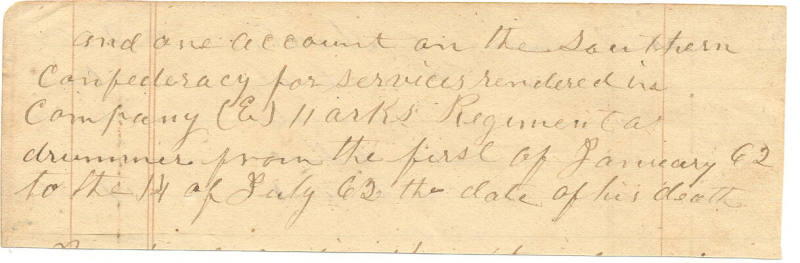 and one account on the Southern
Confederacy for services rendered in
Company (E) 11 arks Regiment a
drummer from the first of January 62
to the 14 of July 62 the date of his death